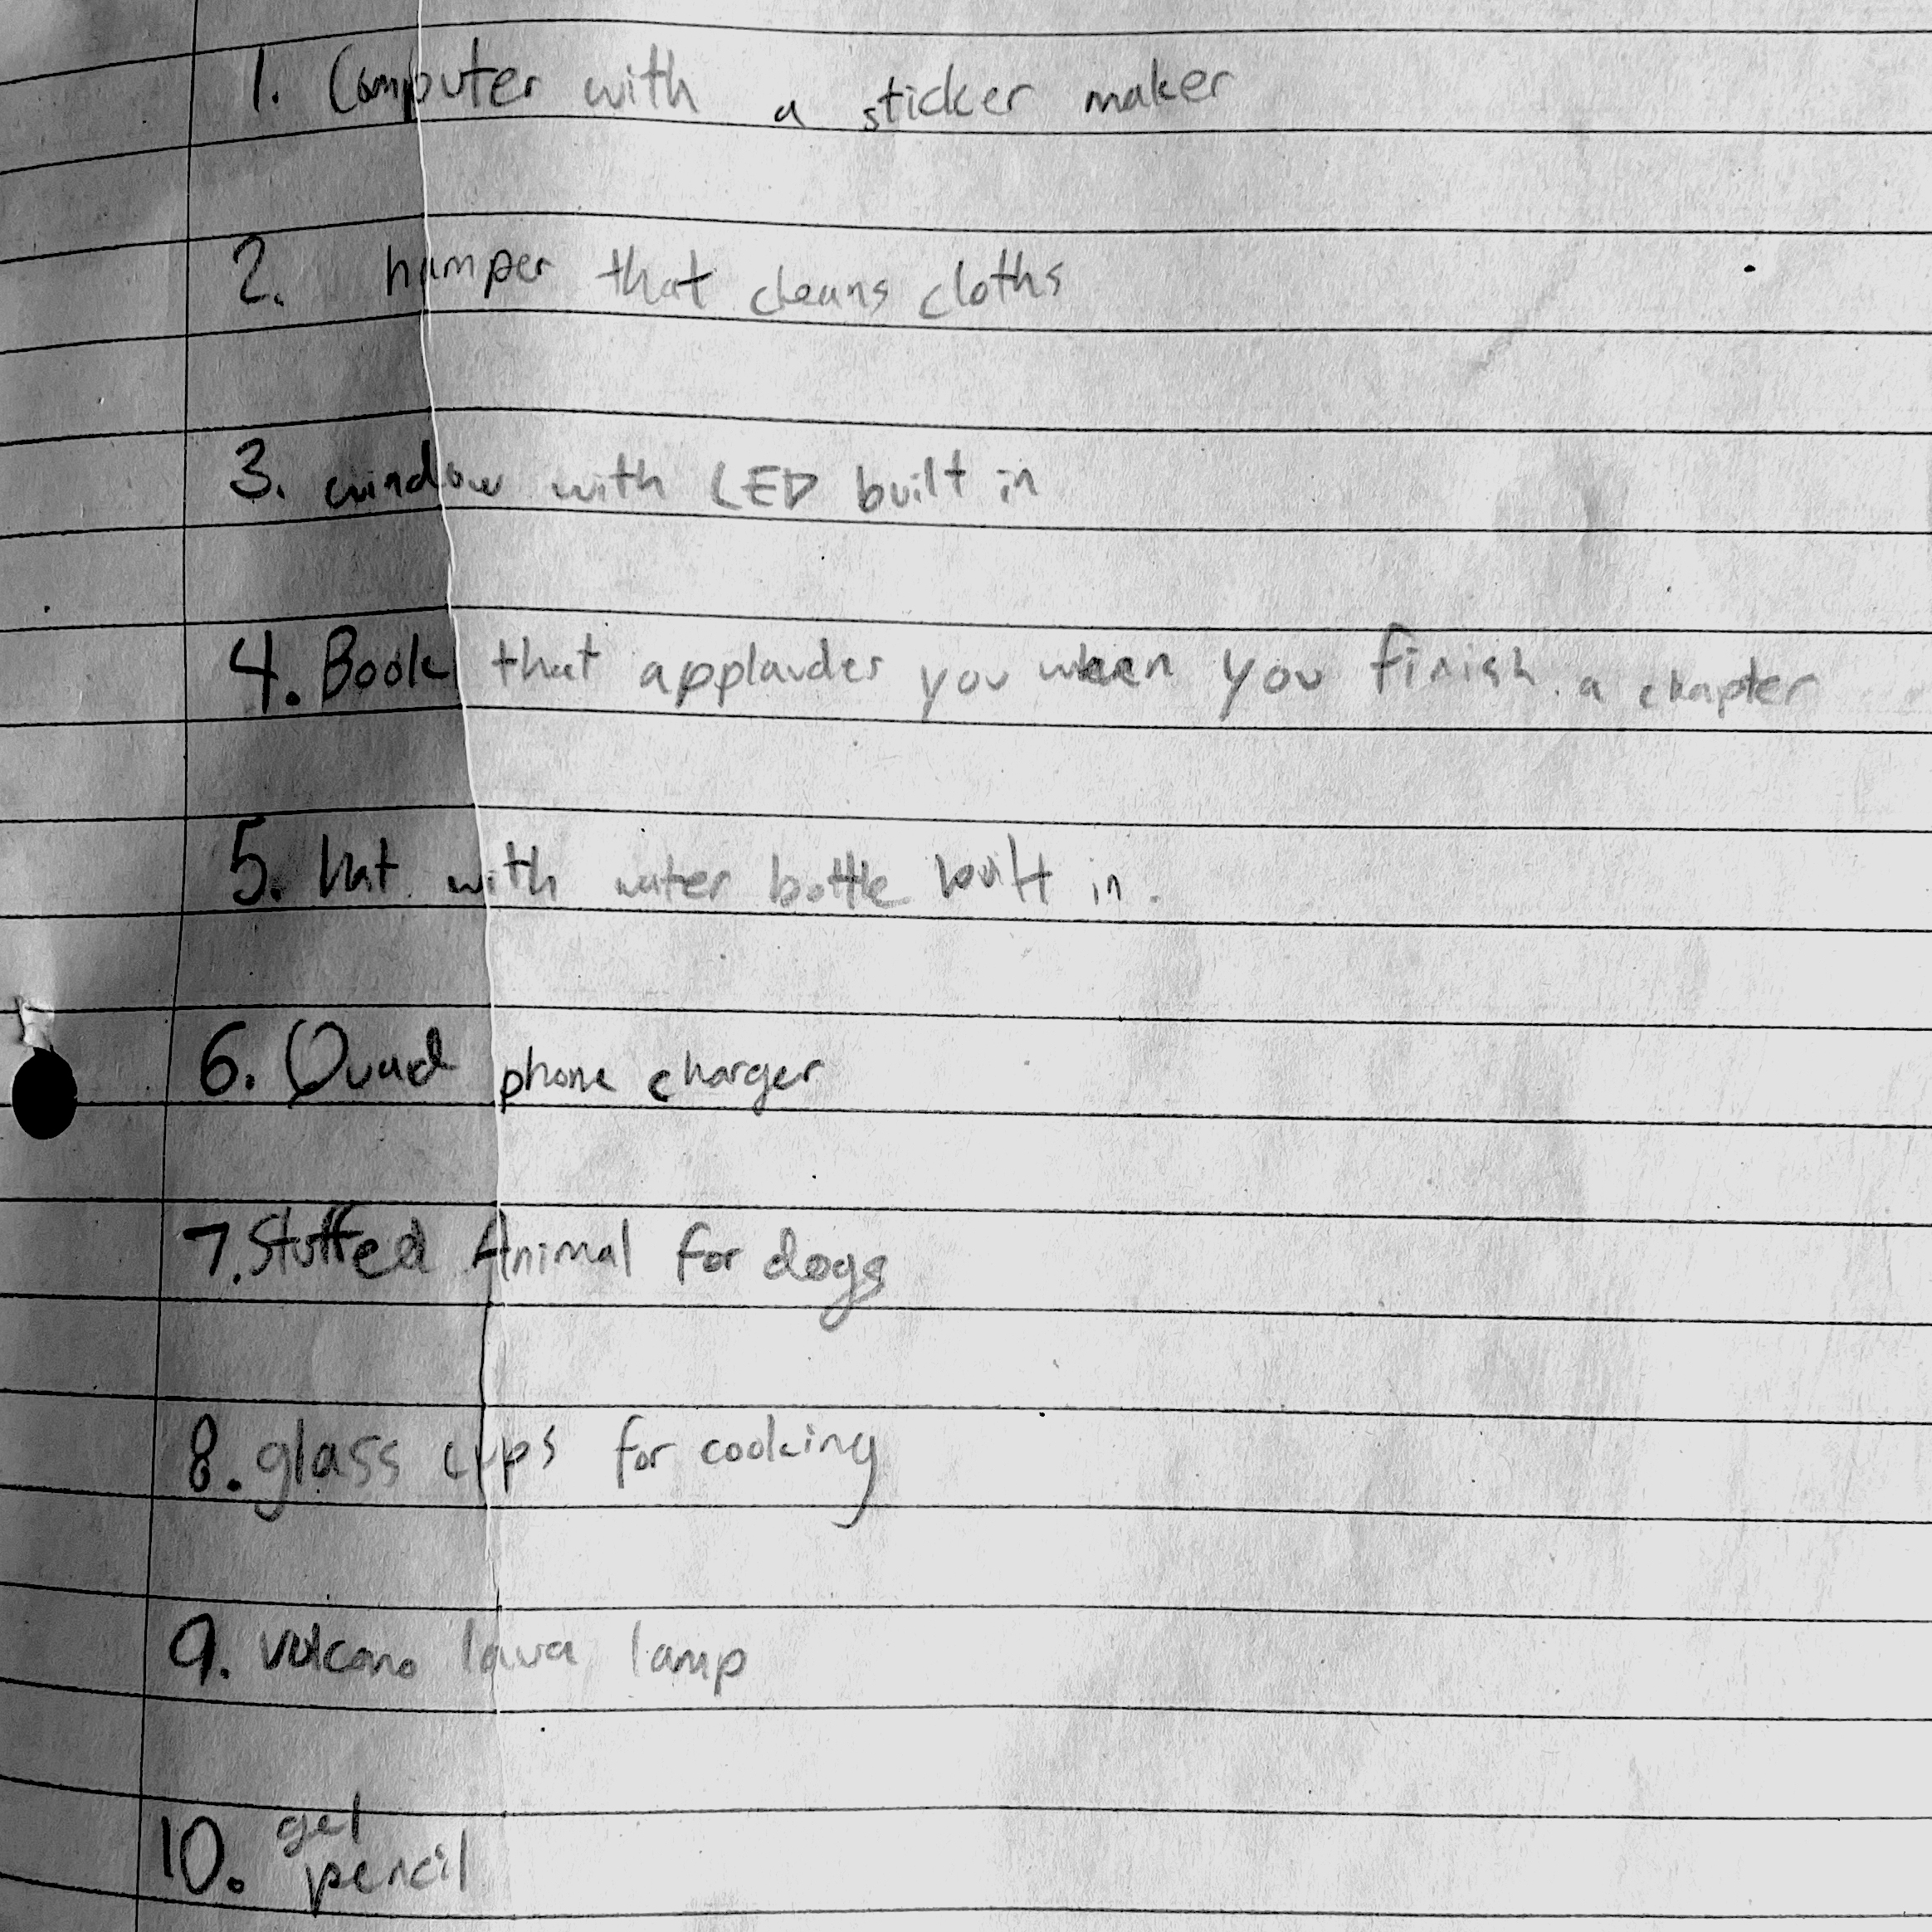 1. Computer with a sticker maker
2. hamper that cleans cloths
3. window with LED built in
4. Book that applaudes you when you finish a chapter
5. hat with water bottle built in.
6. Quad phone charger
7. Stuffed Animal for dogs
8. glass cups for cooking
9. volcano lava lamp
10. gel
pencil